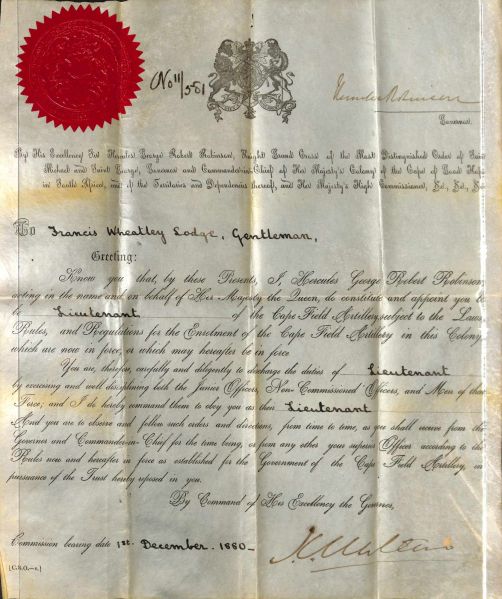 No 11/5-81
Hercules Robinson
Governor.
By His Excellency Sir Hercules George Robert Robinson, Knight Grand Cross of the Most Distinguished Order of Saint
Michael and Saint George, Governor and Commander-in-Chief of Her Majesty's Colony of the Cape of Good Hope
in South Africa, and of the Territories and Dependencies thereof, and Her Majesty's High Commissioner, &c., &c., &c.
To Francis Wheatley Lodge, Gentleman,
Greeting:
Know you that, by these Presents, I, Hercules George Robert Robinson,
acting in the name and on behalf of Her Majesty the Queen, do constitute and appoint you to
be Lieutenant of the Cape Field Artillery, subject to the Laws,
Rules, and Regulations for the Enrolment of the Cape Field Artillery in this Colony,
which are now in force, or which may hereafter be in force.
You are, therefore, carefully and diligently to discharge the duties of Lieutenant
by exercising and well disciplining both the Junior Officers, Non-Commissioned Officers, and Men of that
Force; and I do hereby command them to obey you as their Lieutenant
And you are to observe and follow such orders and directions, from time to time, as you shall receive from the
Governor and Commander-in-Chief for the time being, or from any other your superior Officer according to the
Rules now and hereafter in force as established for the Government of the Cape Field Artillery, in
pursuance of the Trust hereby reposed in you.
By Command of His Excellency the Governor,
Commission bearing date 1st. December. 1880-
[C.S.O.—2.]